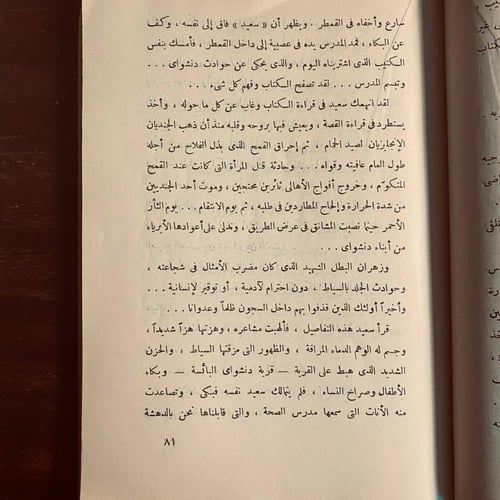 سارع وأخفاه فى القمطر ، ويظهر أن « سعيد » فاق إلى نفسه ، وكف
عن البكاء ، فمد المدرس يده فى عصبية إلى داخل القمطر ، فأمسك بنفس
الكتيب الذى اشتريناه اليوم ، والذى يحكى عن حوادث دنشواى ...
وتبسم المدرس ... لقد تصفح الكتاب وفهم كل شىء ...
لقد انهمك سعيد فى قراءة الكتاب وغاب عن كل ما حوله ، وأخذ
يستطرد فى قراءة القصة ، ويعيش فيها بروحه وقلبه منذ أن ذهب الجنديان
الإنجليزيان لصيد الحمام ، ثم إحراق القمح الذى بذل الفلاح من أجله
طول العام عافيته وقواه ... وحادثة قتل المرأة التى كانت عند القمح
المتكوم ، وخروج أفواج الأهالى ثائرين محتجين ، وموت أحد الجنديين
من شدة الحرارة وإلحاح المطاردين فى طلبه ، ثم يوم الانتقام ... يوم الثأر
الأحمر حينما نصبت المشانق فى عرض الطريق ، وتدلى على أعوادها الأبرياء
من أبناء دنشواى ...
وزهران البطل الشهيد الذى كان مضرب الأمثال فى شجاعته ،
وحوادث الجلد بالسياط ، دون احترام لآدمية ، أو توقير لإنسانية ...
وأخيراً أولئك الذين قذفوا بهم داخل السجون ظلماً وعدوانا ...
قرأ سعيد هذه التفاصيل ، فألهبت مشاعره ، وهزتها هزاً شديداً ،
وجسم له الوهم الدماء المراقة ، والظهور التى مزقتها السياط ، والحزن
الشديد الذى هبط على القرية — قرية دنشواى البائسة — وبكاء
الأطفال وصراخ النساء ، فلم يتمالك سعيد نفسه فبكى ، وتصاعدت
منه الأنات التى سمعها مدرس الصحة ، والتى قابلناها نحن بالدهشة
٨١